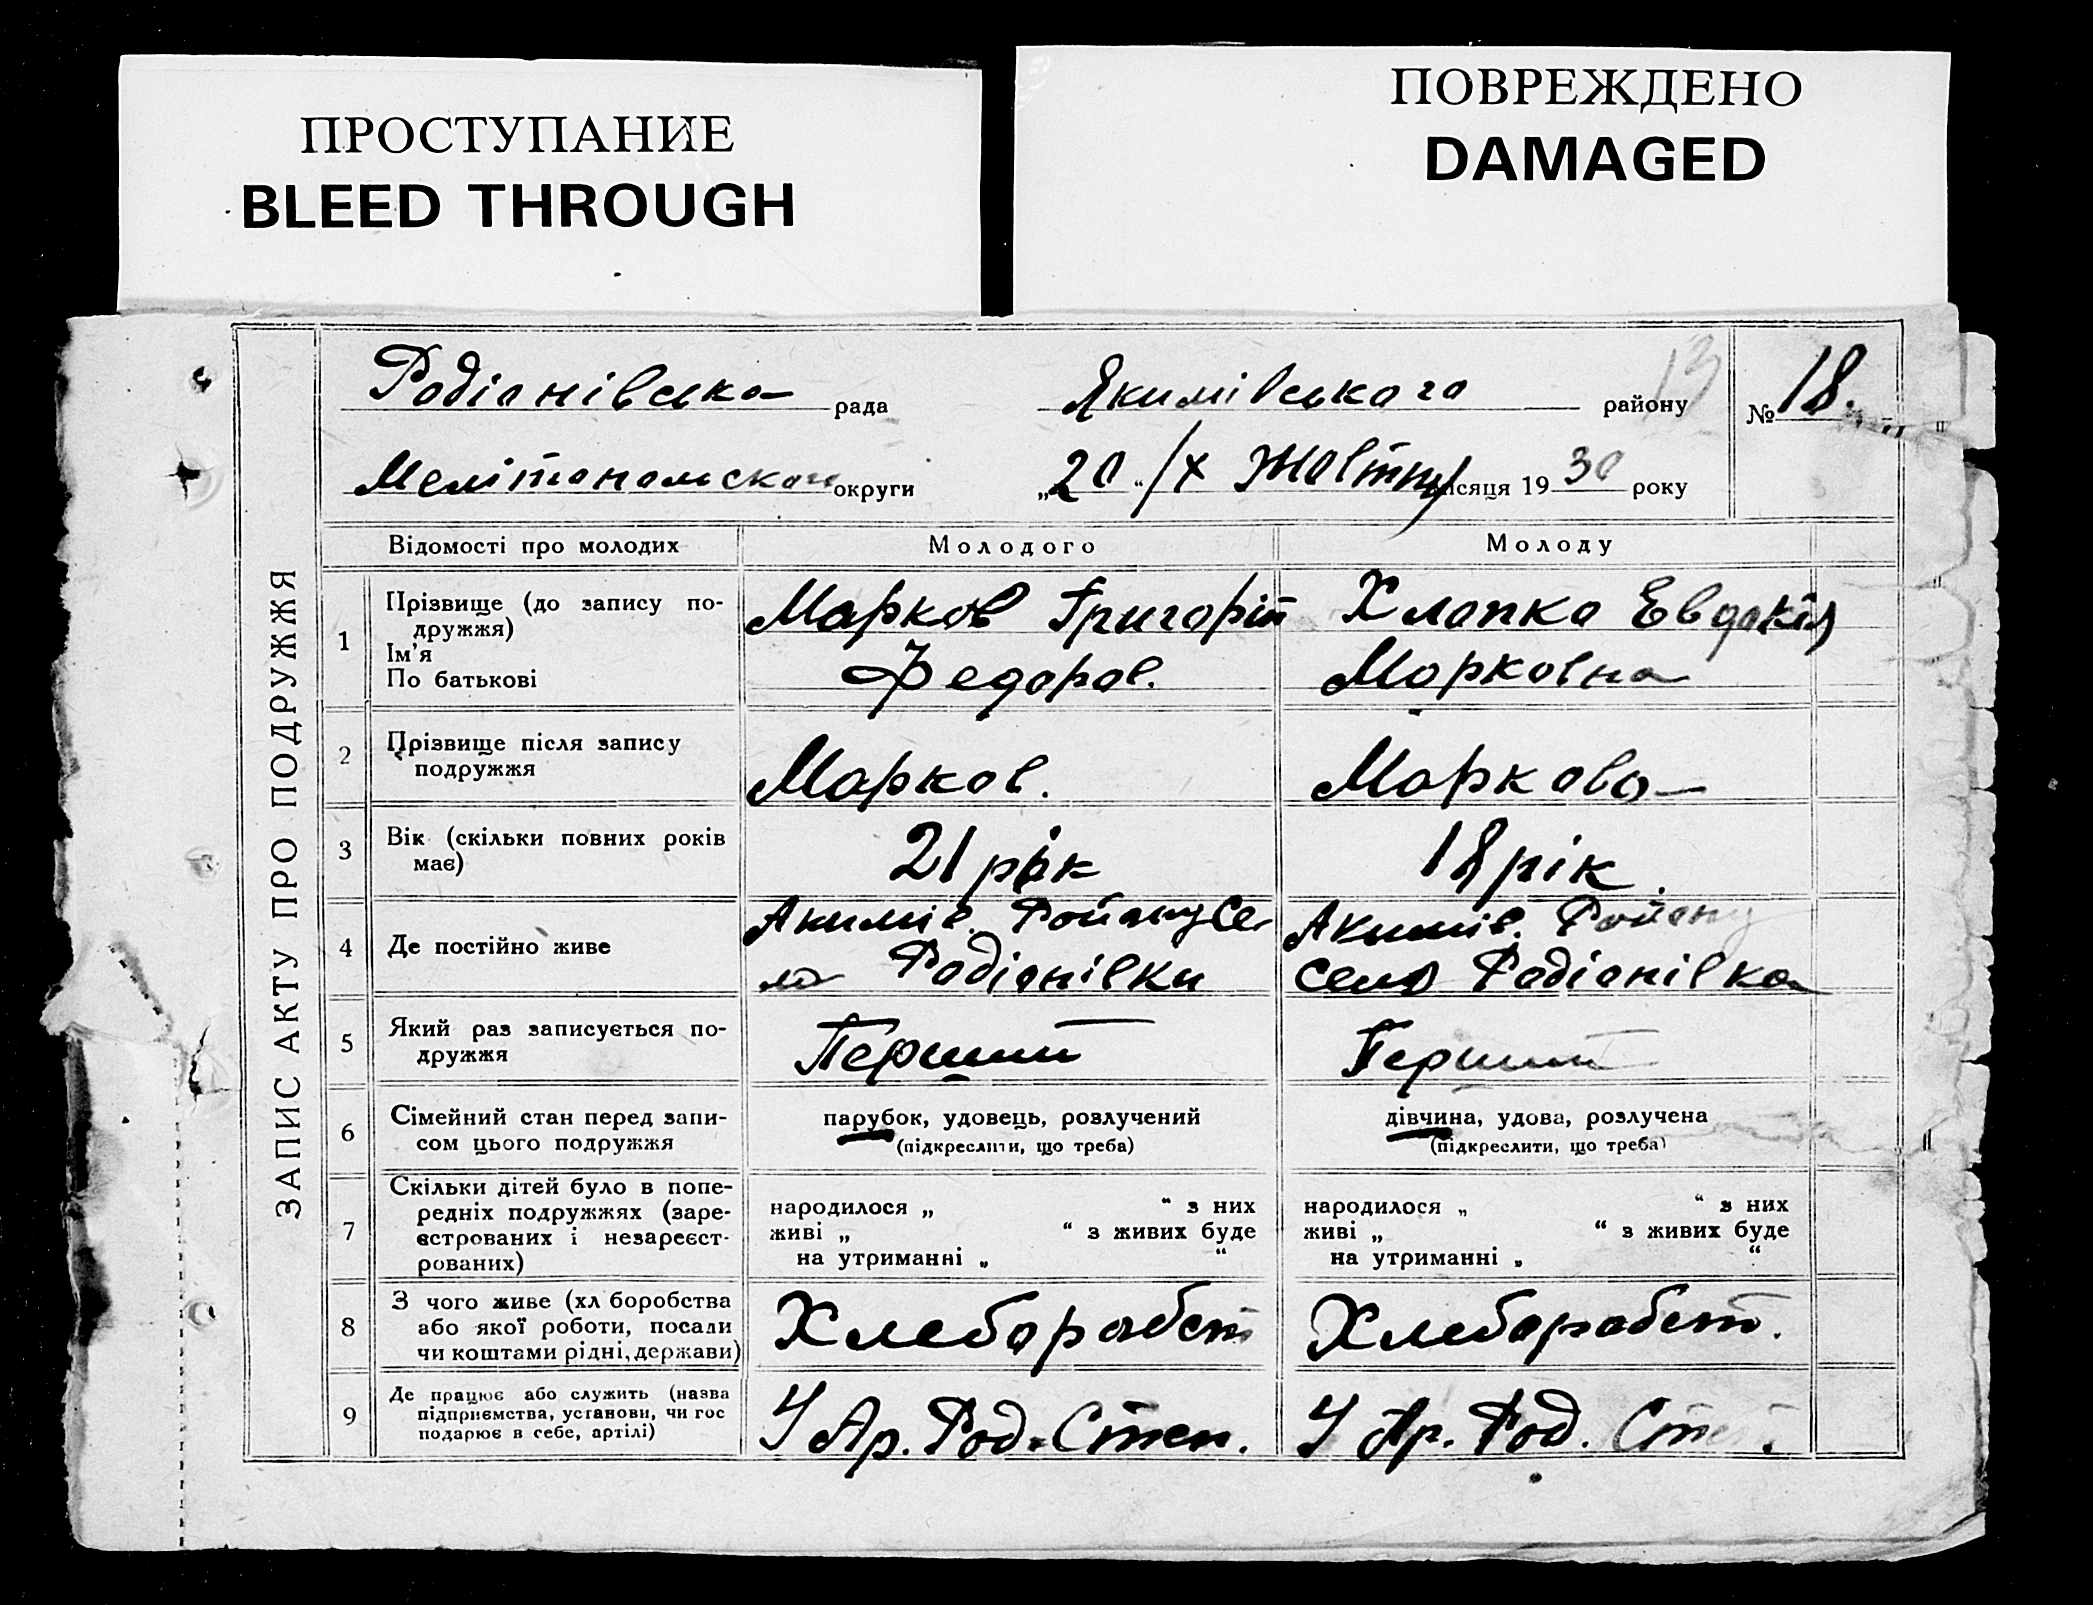 ПРОСТУПАНИЕ
BLEED THROUGH
ПОВРЕЖДЕНО
DAMAGED
ЗАПИС АКТУ ПРО ПОДРУЖЖЯ
Родіонівська рада Якимівського району 13 № 18.
Мелітопольского округи „20“ /X Жовтня місяця 1930 року
Відомості про молодих Молодого Молоду
1 Прізвище (до запису по-
дружжя)
Ім'я
По батькові
Марков Григорій
Федоров.
Хлопко Евдокія
Марковна
2 Прізвище після запису
подружжя
Марков.
Маркова
3 Вік (скільки повних років
має)
21 рік
18 рік.
4 Де постійно живе
Акимів. Району Се-
ло Родіонівки
Акимів. Району
Село Родіонівка
5 Який раз записується по-
дружжя
Перший
Перший
6 Сімейний стан перед запи-
сом цього подружжя
парубок, удовець, розлучений
(підкреслити, що треба)
дівчина, удова, розлучена
(підкреслити, що треба)
7 Скільки дітей було в попе-
редніх подружжях (заре-
єстрованих і незареєст-
рованих)
народилося „ “ з них
живі „ “ з живих буде
на утриманні „ “
народилося „ “ з них
живі „ “ з живих буде
на утриманні „ “
8 З чого живе (хл боробства
або якої роботи, посади
чи коштами рідні, держави)
Хлеборобст
Хлеборобст.
9 Де працює або служить (назва
підприємства, установи, чи гос
подарює в себе, артілі)
У Ар. Род. Степ.
У Ар. Род. Ст